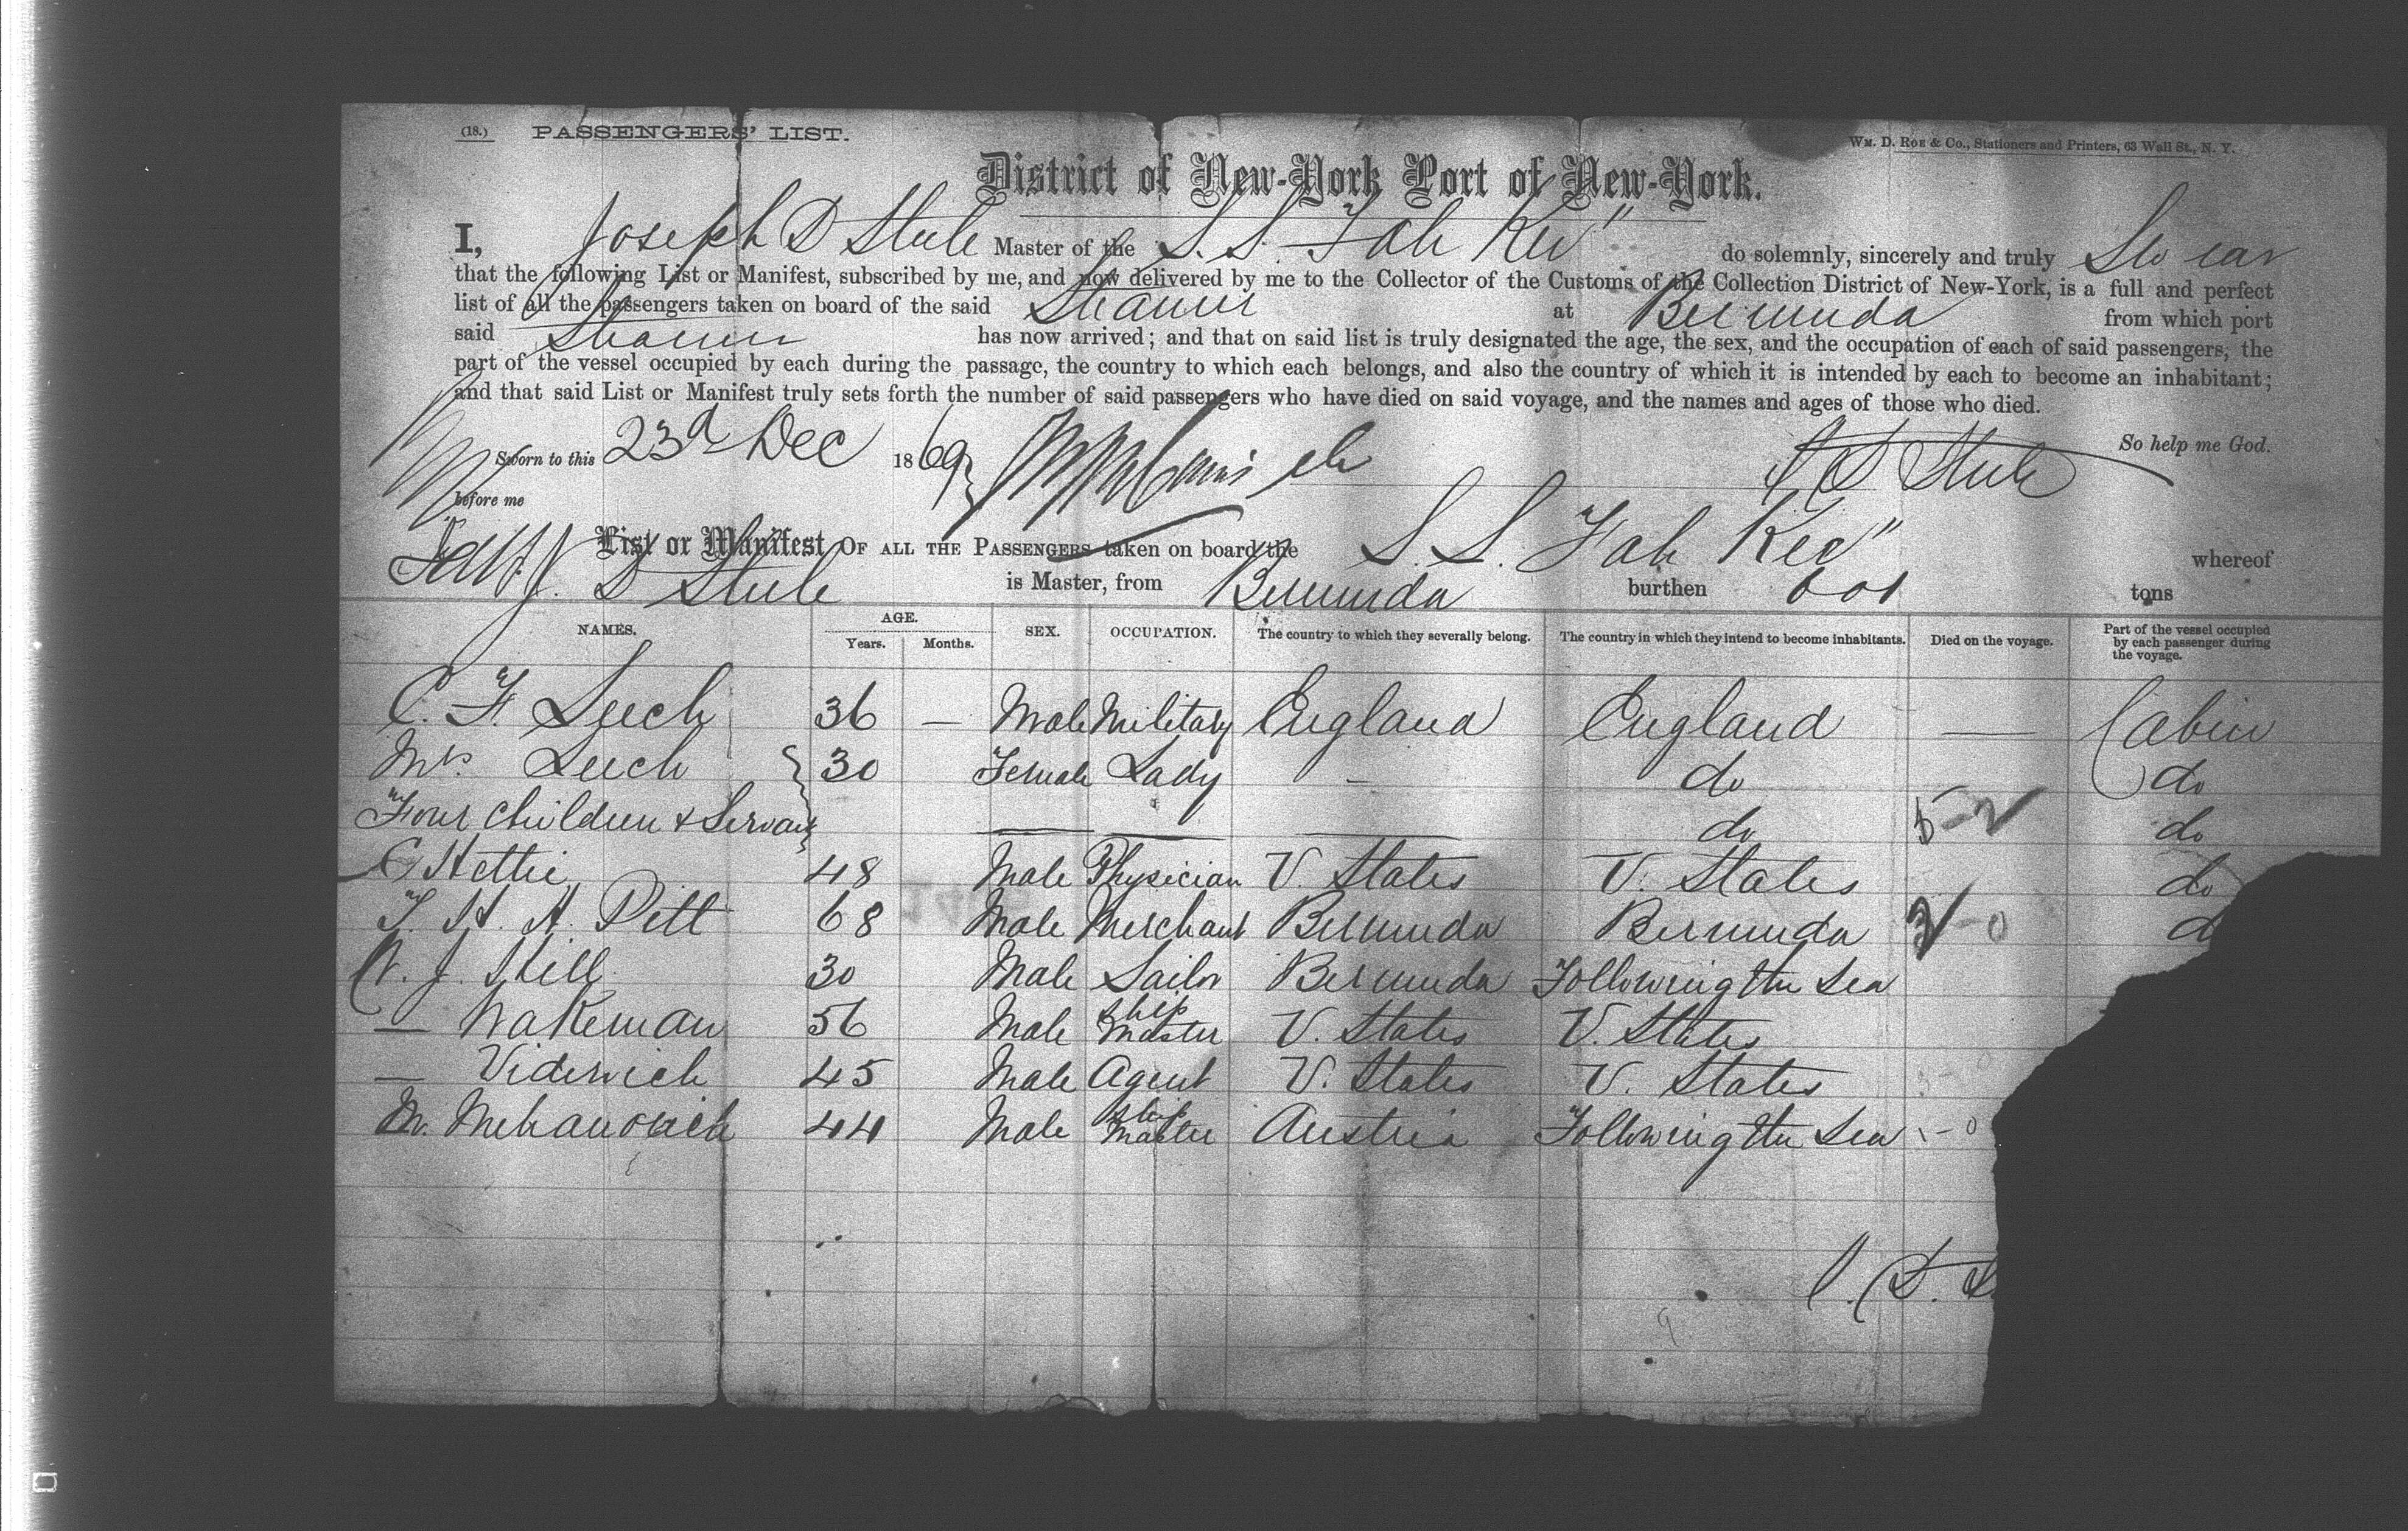 (18.) PASSENGERS' LIST.
Wm. D. Roe & Co., Stationers and Printers, 63 Wall St., N. Y.
District of New-York Port of New-York.
I, Joseph D Steele Master of the S. S. "Fah Kee" do solemnly, sincerely and truly Swear
that the following List or Manifest, subscribed by me, and now delivered by me to the Collector of the Customs of the Collection District of New-York, is a full and perfect
list of all the passengers taken on board of the said Steamer at Bermuda from which port
said Steamer has now arrived; and that on said list is truly designated the age, the sex, and the occupation of each of said passengers, the
part of the vessel occupied by each during the passage, the country to which each belongs, and also the country of which it is intended by each to become an inhabitant;
and that said List or Manifest truly sets forth the number of said passengers who have died on said voyage, and the names and ages of those who died.
So help me God.
Sworn to this 23d Dec 1869 J D Steele
before me
List or Manifest OF ALL THE PASSENGERS taken on board the S. S. "Fah Kee" whereof
J. D Steele is Master, from Bermuda burthen 601 tons
NAMES. AGE. Years. Months. SEX. OCCUPATION. The country to which they severally belong. The country in which they intend to become inhabitants. Died on the voyage. Part of the vessel occupied by each passenger during the voyage.
C. F. Leech 36 — Male Military England England — Cabin
Mrs. Leech 30 Female Lady - do do
Four children & Servant do 5-2 do
C Hettie 48 Male Physician U. States U. States do
T. H. A. Pitt 68 Male Merchant Bermuda Bermuda 3-0 d
W. J. Hill 30 Male Sailor Bermuda Following the Sea
— Wakeman 56 Male Ship Master U. States U. States
— Viderwich 45 Male Agent U. States U. States
M. Mehanovich 44 Male Ship Master Austria Following the Sea
J. D. S